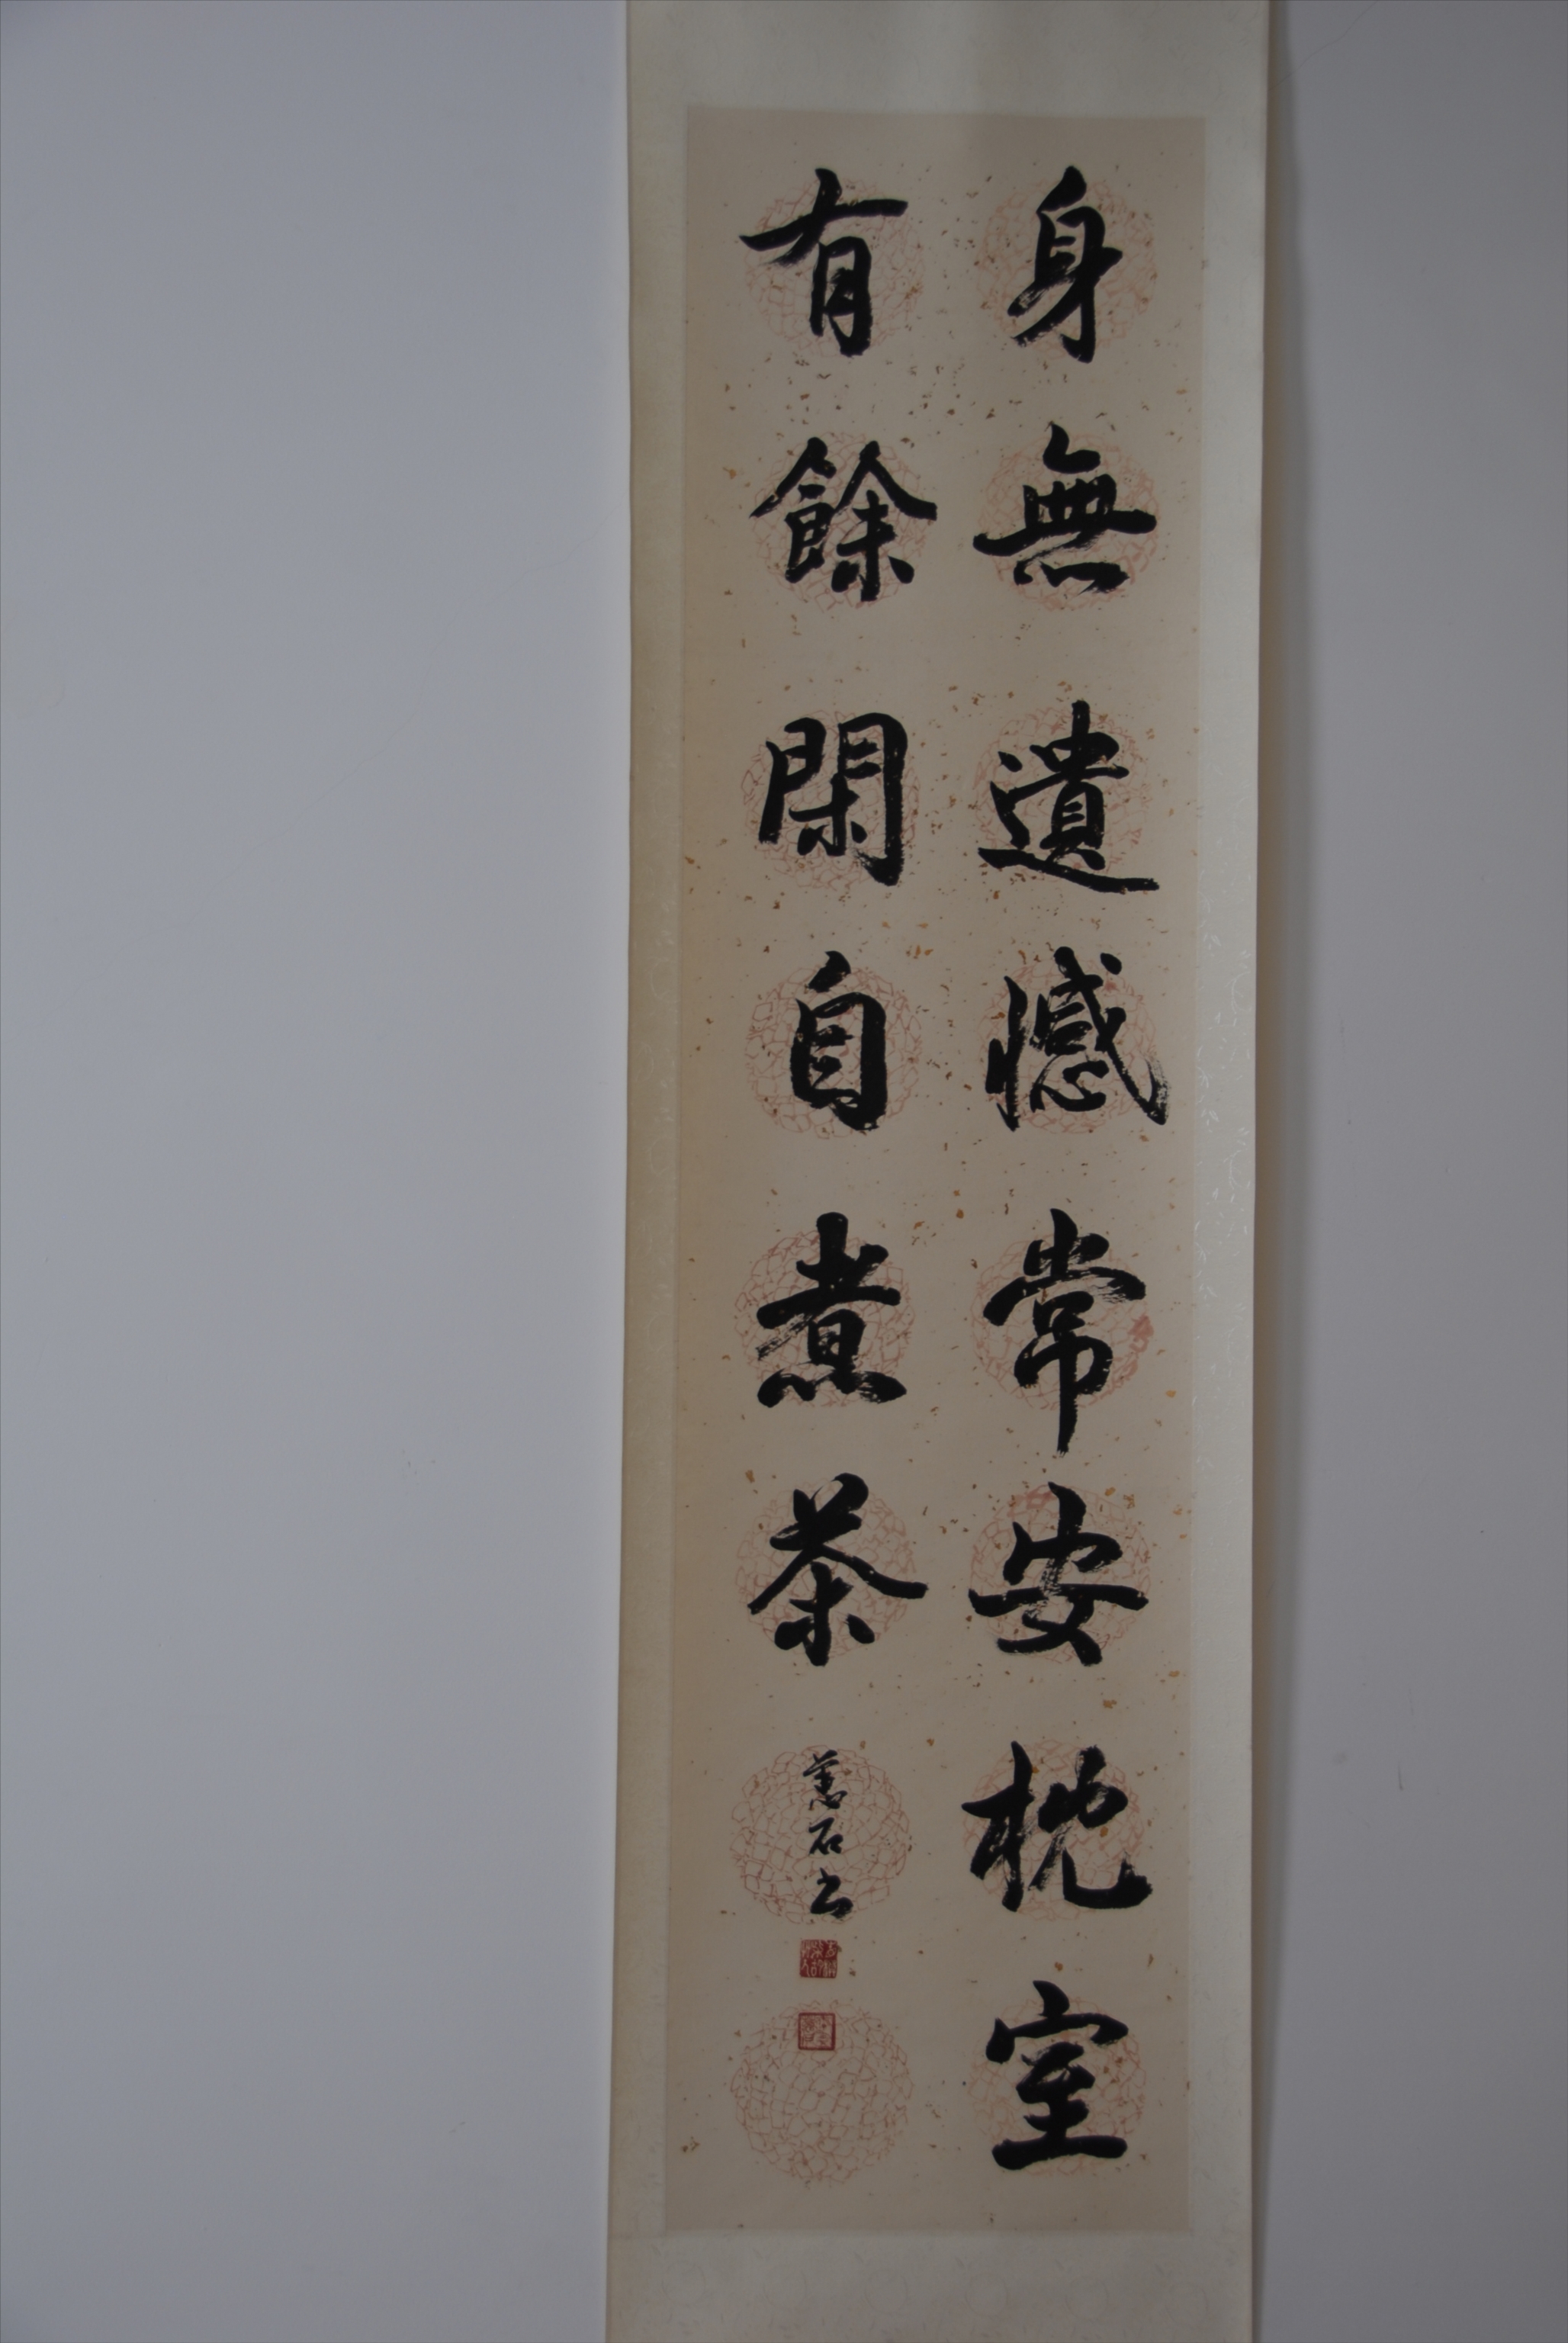 身無遺憾常安枕室
有餘閑自煮茶
石書